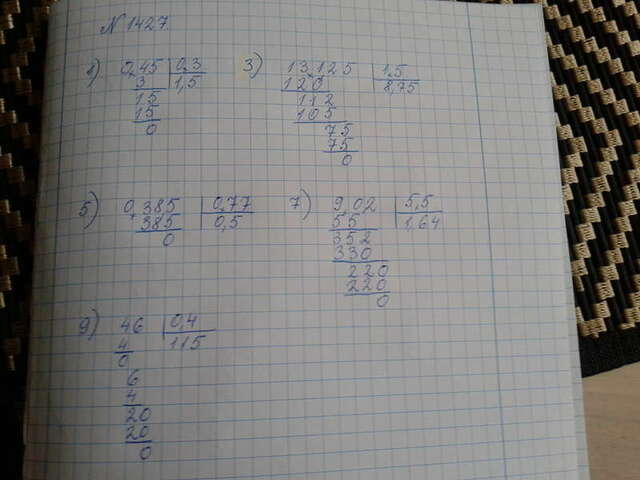 N 1427.
1) 0,45 | 0,3
3 | 1,5
15
15
0
3) 13,125 | 1,5
120 | 8,75
112
105
75
75
0
5) 0,385 | 0,77
385 | 0,5
0
7) 902 | 5,5
55 | 1,64
352
330
220
220
0
9) 46 | 0,4
4 | 115
0
6
4
20
20
0